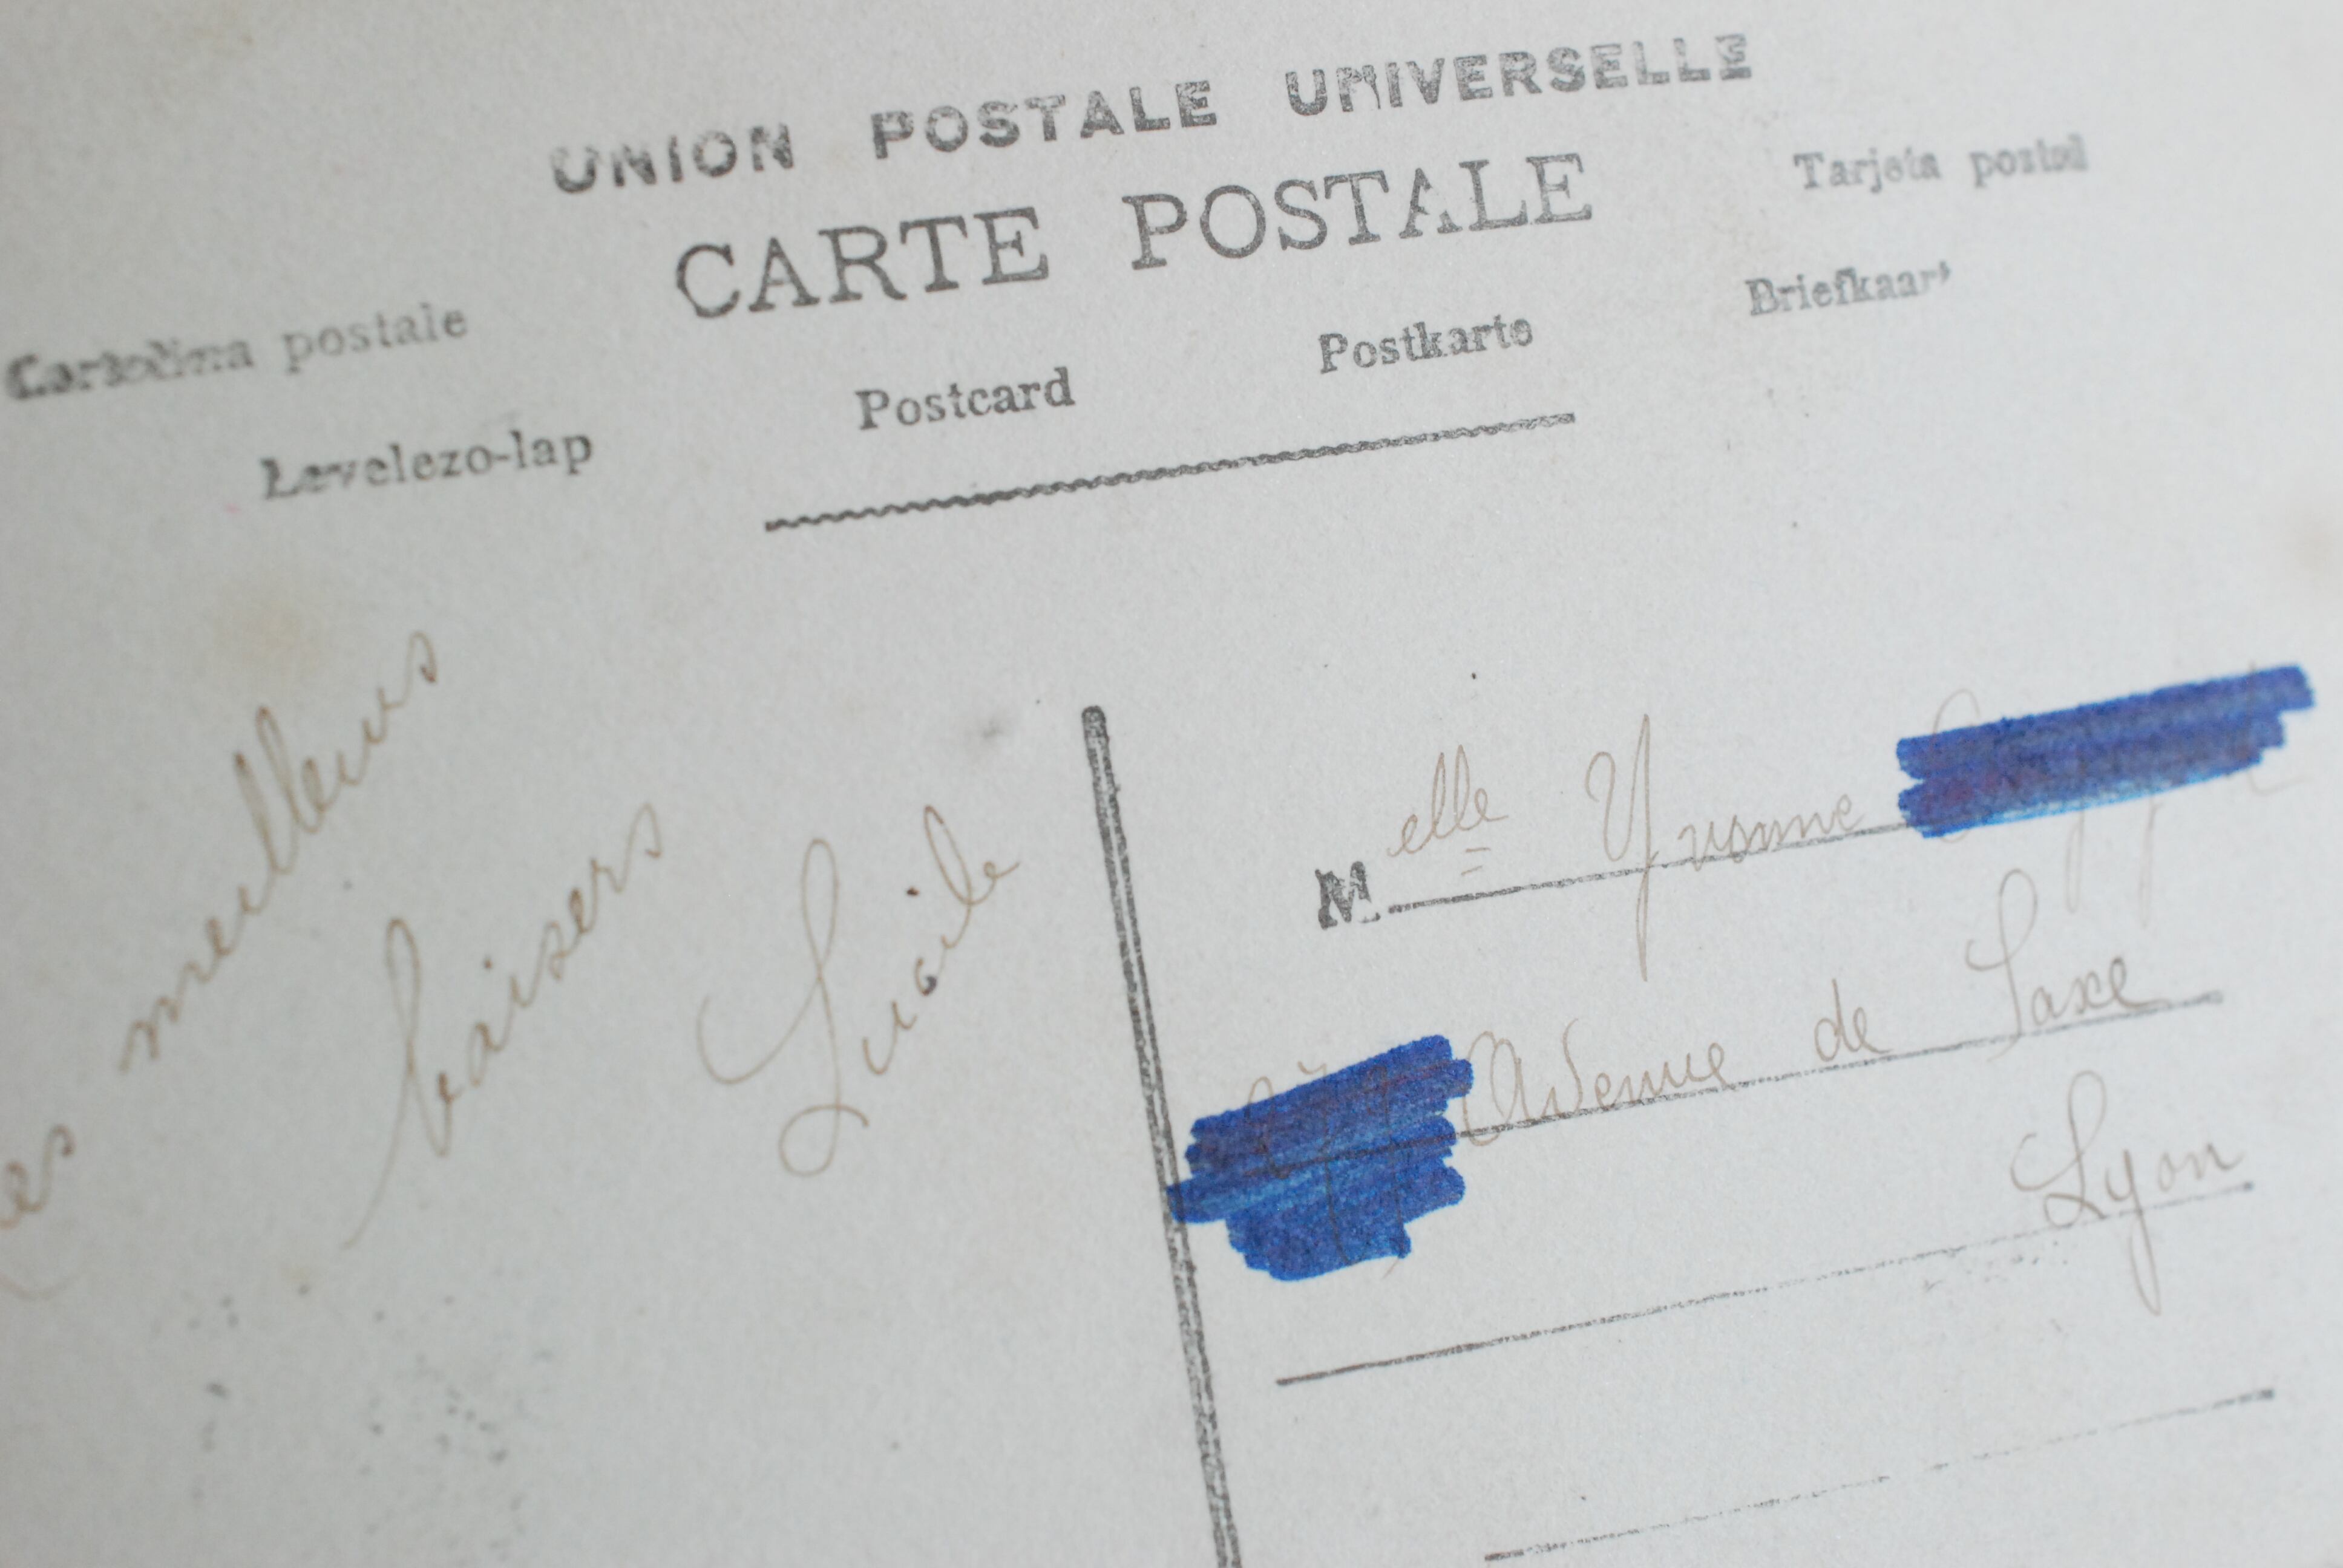 UNION POSTALE UNIVERSELLE
CARTE POSTALE
Tarjeta postal
Cartolina postale
Postkarte
Briefkaart
Levelezo-lap
Postcard
meilleurs
baisers
Lucile
Melle Yvonne
Avenue de Saxe
Lyon